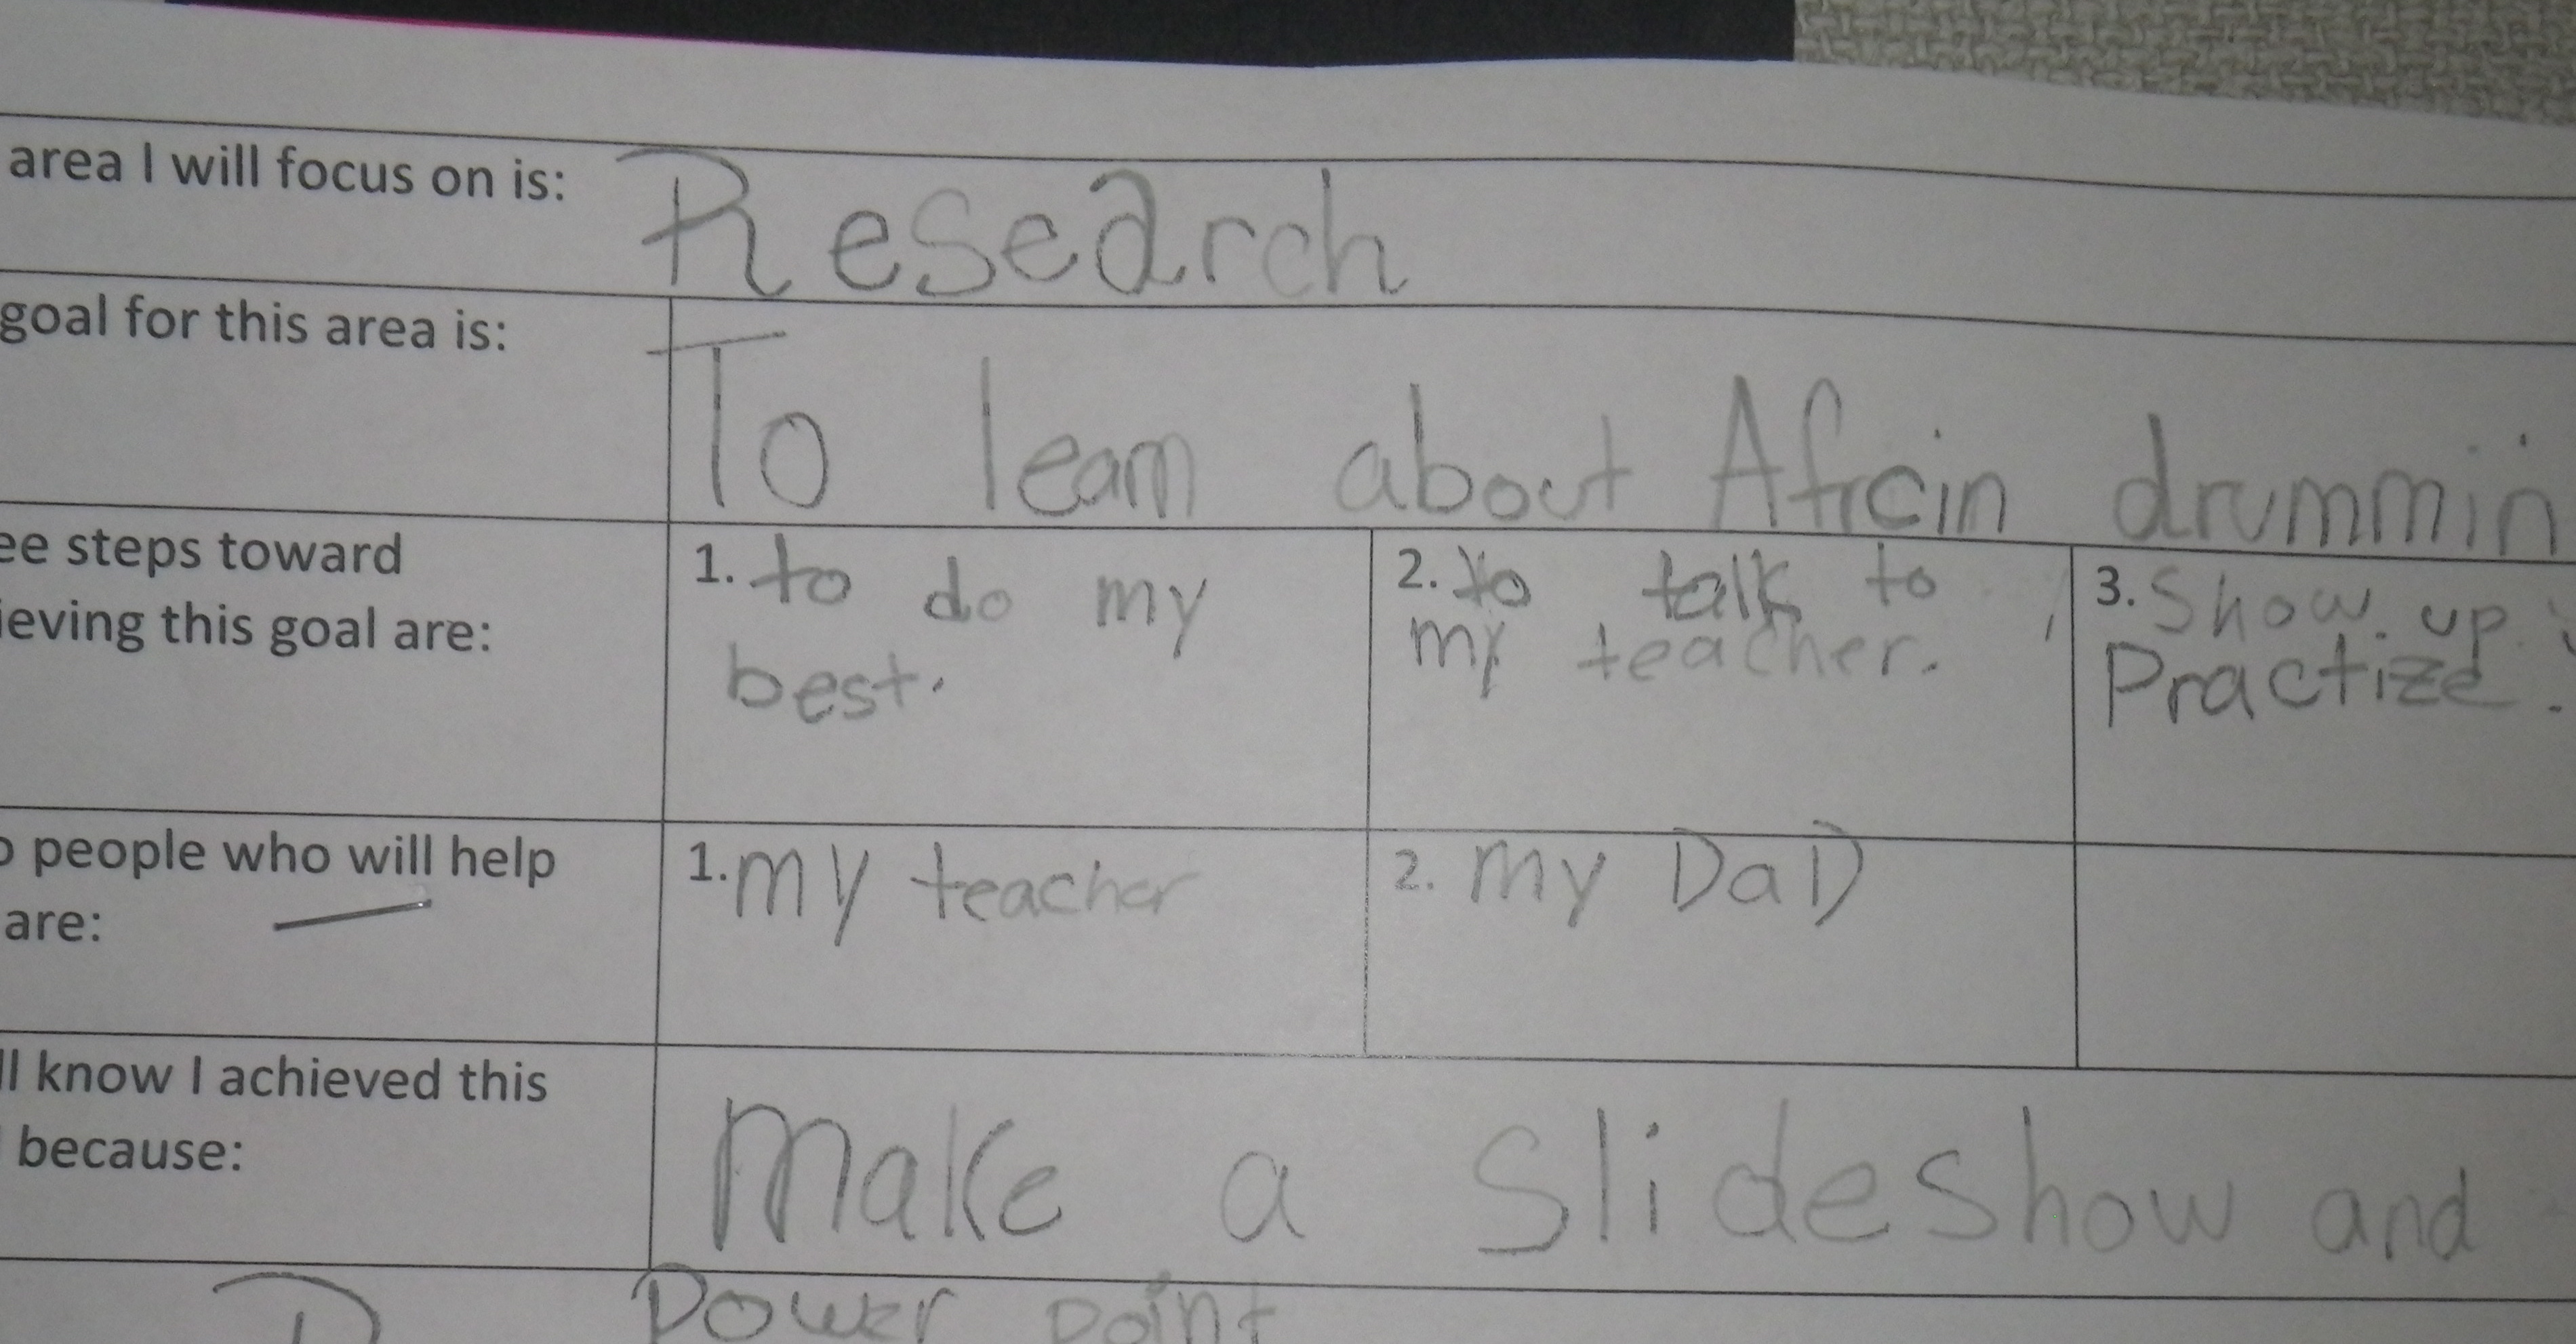 area I will focus on is: Research
goal for this area is: To learn about Africin drummin
ee steps toward
ieving this goal are:
1. to do my
best.
2. to talk to
my teacher.
3. Show up
Practize.
people who will help
are:
1. my teacher
2. my DaD
ll know I achieved this
because:
Make a Slideshow and
Power point